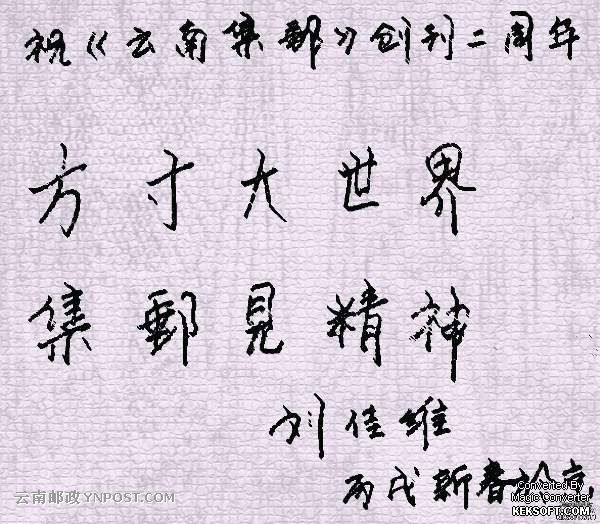 祝《云南集郵》创刊二周年
方寸大世界
集郵見精神
刘佳维
丙戌新春於京
云南邮政YNPOST.COM
Converted By
Magic Converter
KEKSOFT.COM